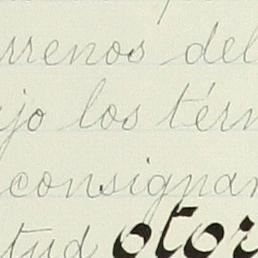 rrenos del
ajo los térm
consignan
tud otor